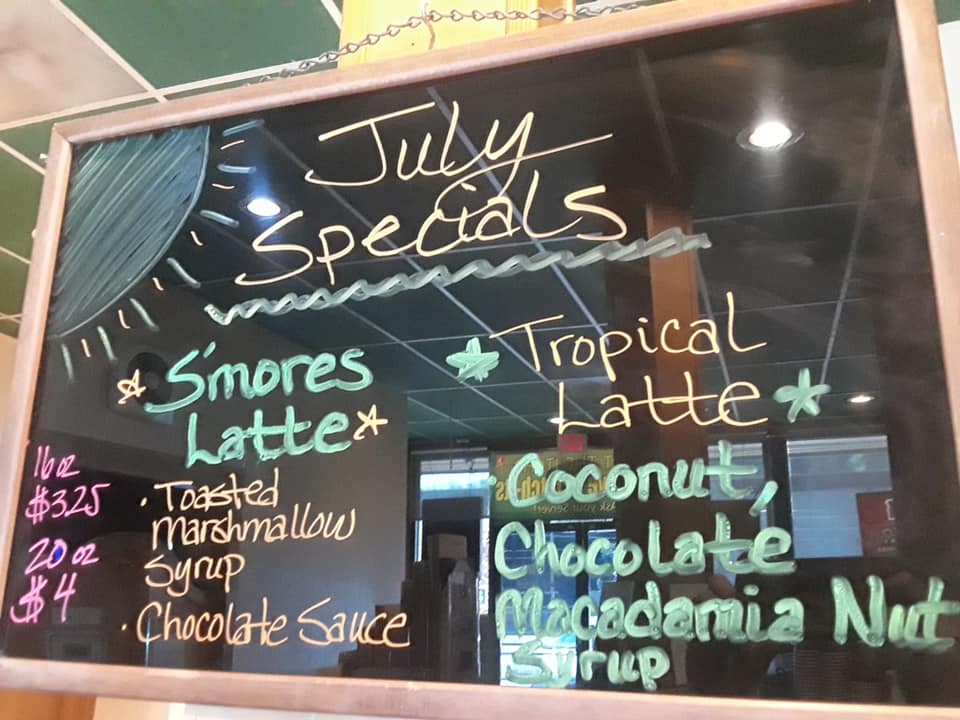 July
Specials
S'mores
Latte
16 oz
$3.25
20 oz
$4
• Toasted
Marshmallow
Syrup
• Chocolate Sauce
Tropical
Latte
Coconut,
Chocolate
Macadamia Nut
Syrup
Ask your Server!